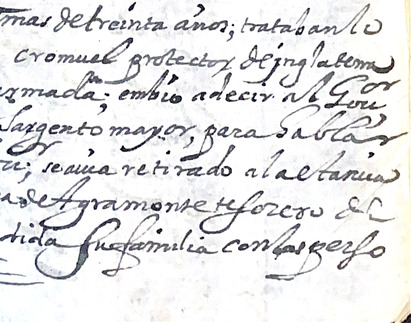 mas de treinta años; trataban lo
cromuel protector de jnglaterra
armada; embio a decir al Gor
Sargento mayor, para hablar
se auia retirado a la estancia
a de Agramonte tesorero de
su familia con las perso